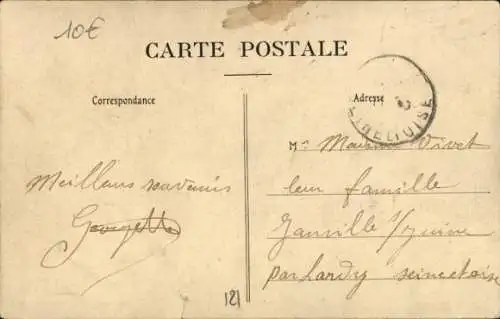 10€
CARTE POSTALE
Correspondance
Adresse
Mr Maurice Vivet
leur famille
Meilleurs souvenirs
Georgette
Janville s/Juine
par Lardy seine et oise
121